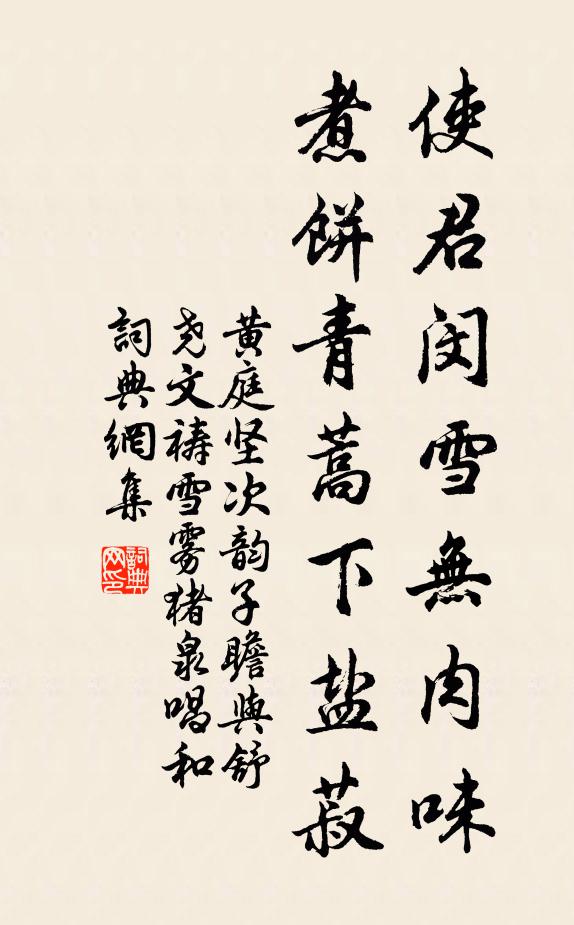 使君闵雪無肉味
煮餅青蒿下盐菽
黄庭坚次韵子瞻與舒
尧文祷雪雾猪泉唱和
詞典網集
詞典网印